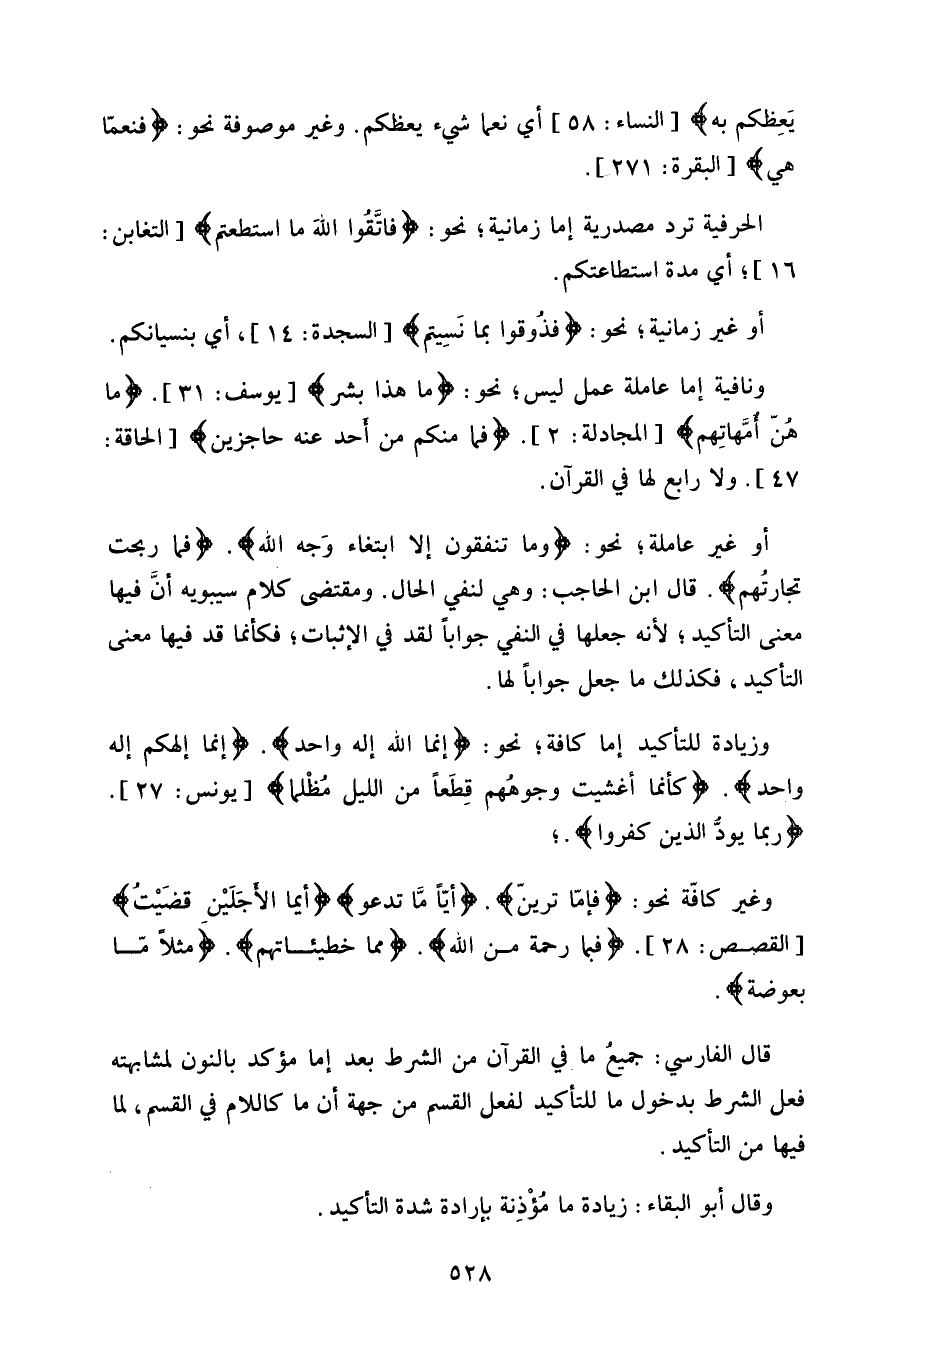 يَعِظكم به﴾ [ النساء : ٥٨ ] أي نعما شيء يعظكم. وغير موصوفة نحو : ﴿فنعمّا
هي﴾ [ البقرة : ٢٧١ ].
الحرفية ترد مصدرية إما زمانية؛ نحو : ﴿فاتَّقُوا اللهَ ما استطعتم﴾ [ التغابن :
١٦ ]؛ أي مدة استطاعتكم.
أو غير زمانية؛ نحو : ﴿فذُوقوا بما نَسِيتم﴾ [ السجدة : ١٤ ]، أي بنسيانكم.
ونافية إما عاملة عمل ليس؛ نحو : ﴿ما هذا بشر﴾ [ يوسف : ٣١ ]. ﴿ما
هُنّ أُمَّهاتِهم﴾ [ المجادلة : ٢ ]. ﴿فما منكم من أَحد عنه حاجزين﴾ [ الحاقة :
٤٧ ]. ولا رابع لها في القرآن.
أو غير عاملة؛ نحو : ﴿وما تنفقون إلا ابتغاء وَجه الله﴾. ﴿فما ربحت
تجارتُهم﴾. قال ابن الحاجب : وهي لنفي الحال. ومقتضى كلام سيبويه أنَّ فيها
معنى التأكيد ؛ لأنه جعلها في النفي جواباً لقد في الإثبات؛ فكأنما قد فيها معنى
التأكيد ، فكذلك ما جعل جواباً لها.
وزيادة للتأكيد إما كافة؛ نحو : ﴿إنما الله إله واحد﴾. ﴿إنما إلهكم إله
واحد﴾. ﴿كأنما أغشيت وجوهُهم قِطَعاً من الليل مُظْلما﴾ [ يونس : ٢٧ ].
﴿ربما يودُّ الذين كفروا﴾.؛
وغير كافّة نحو : ﴿فإمّا ترينّ﴾. ﴿أيّاً مَّا تدعو﴾﴿أيما الأَجَلَيْنِ قضَيْتُ﴾
[ القصص : ٢٨ ]. ﴿فبما رحمة من الله﴾. ﴿مما خطيئاتهم﴾. ﴿مثلاً مّا
بعوضة﴾.
قال الفارسي : جميعُ ما في القرآن من الشرط بعد إما مؤكد بالنون لمشابهته
فعل الشرط بدخول ما للتأكيد لفعل القسم من جهة أن ما كاللام في القسم، لما
فيها من التأكيد.
وقال أبو البقاء : زيادة ما مُؤْذِنة بإرادة شدة التأكيد.
٥٢٨